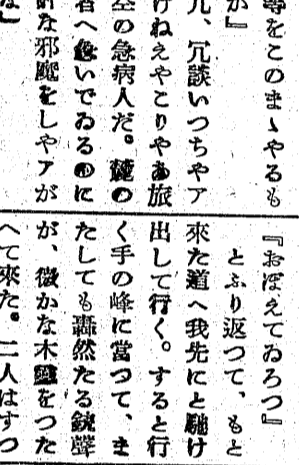 等をこのまゝやるも
か』
、冗談いつちやア
けねえやこりやあ旅
の急病人だ。麓の
者へ急いでゐるのに
な邪魔をしやアが
『おぼえてゐろつ』
とふり返つて、もと
來た道へ我先にと駈け
出して行く。すると行
く手の峰に當つて、ま
たしても轟然たる銃聲
が、微かな木靈をつた
へて來た。二人はすつ